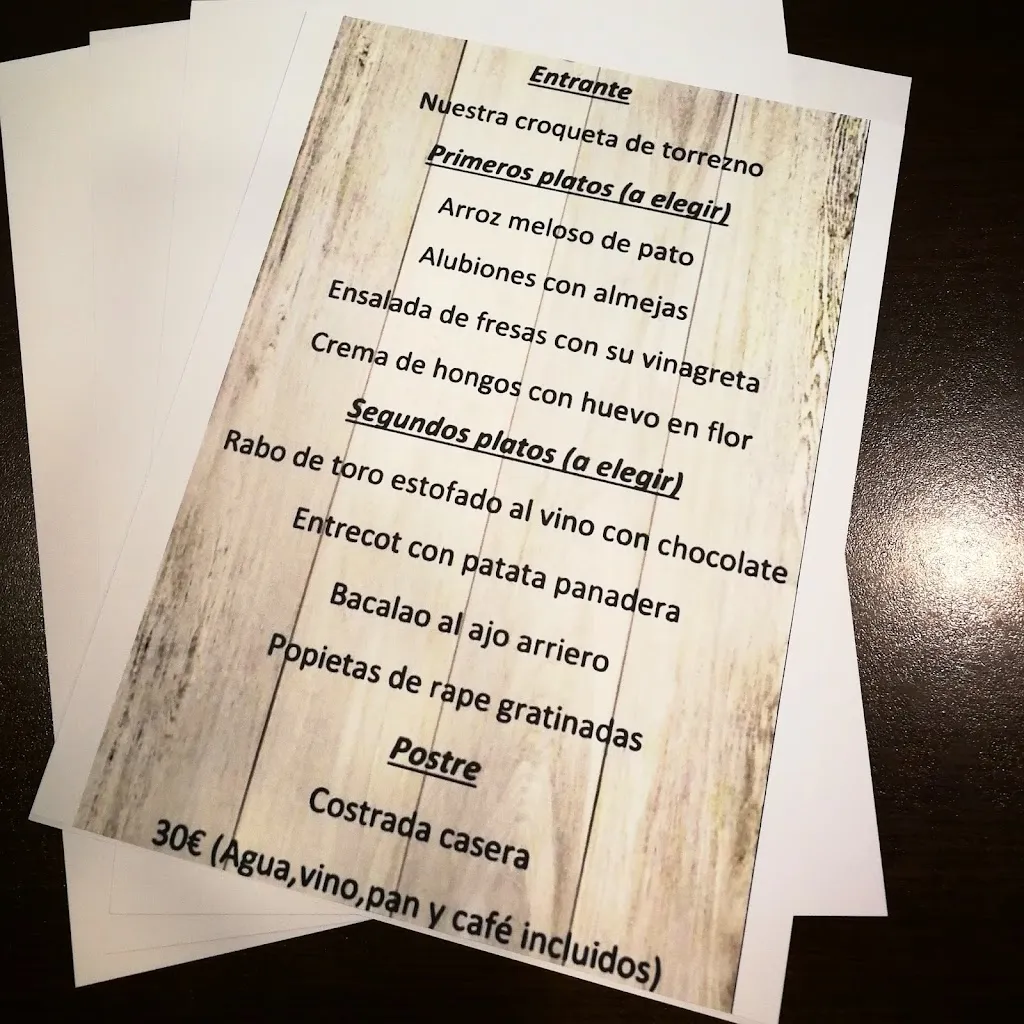 Entrante
Nuestra croqueta de torrezno
Primeros platos (a elegir)
Arroz meloso de pato
Alubiones con almejas
Ensalada de fresas con su vinagreta
Crema de hongos con huevo en flor
Segundos platos (a elegir)
Rabo de toro estofado al vino con chocolate
Entrecot con patata panadera
Bacalao al ajo arriero
Popietas de rape gratinadas
Postre
Costrada casera
30€ (Agua,vino,pan y café incluidos)